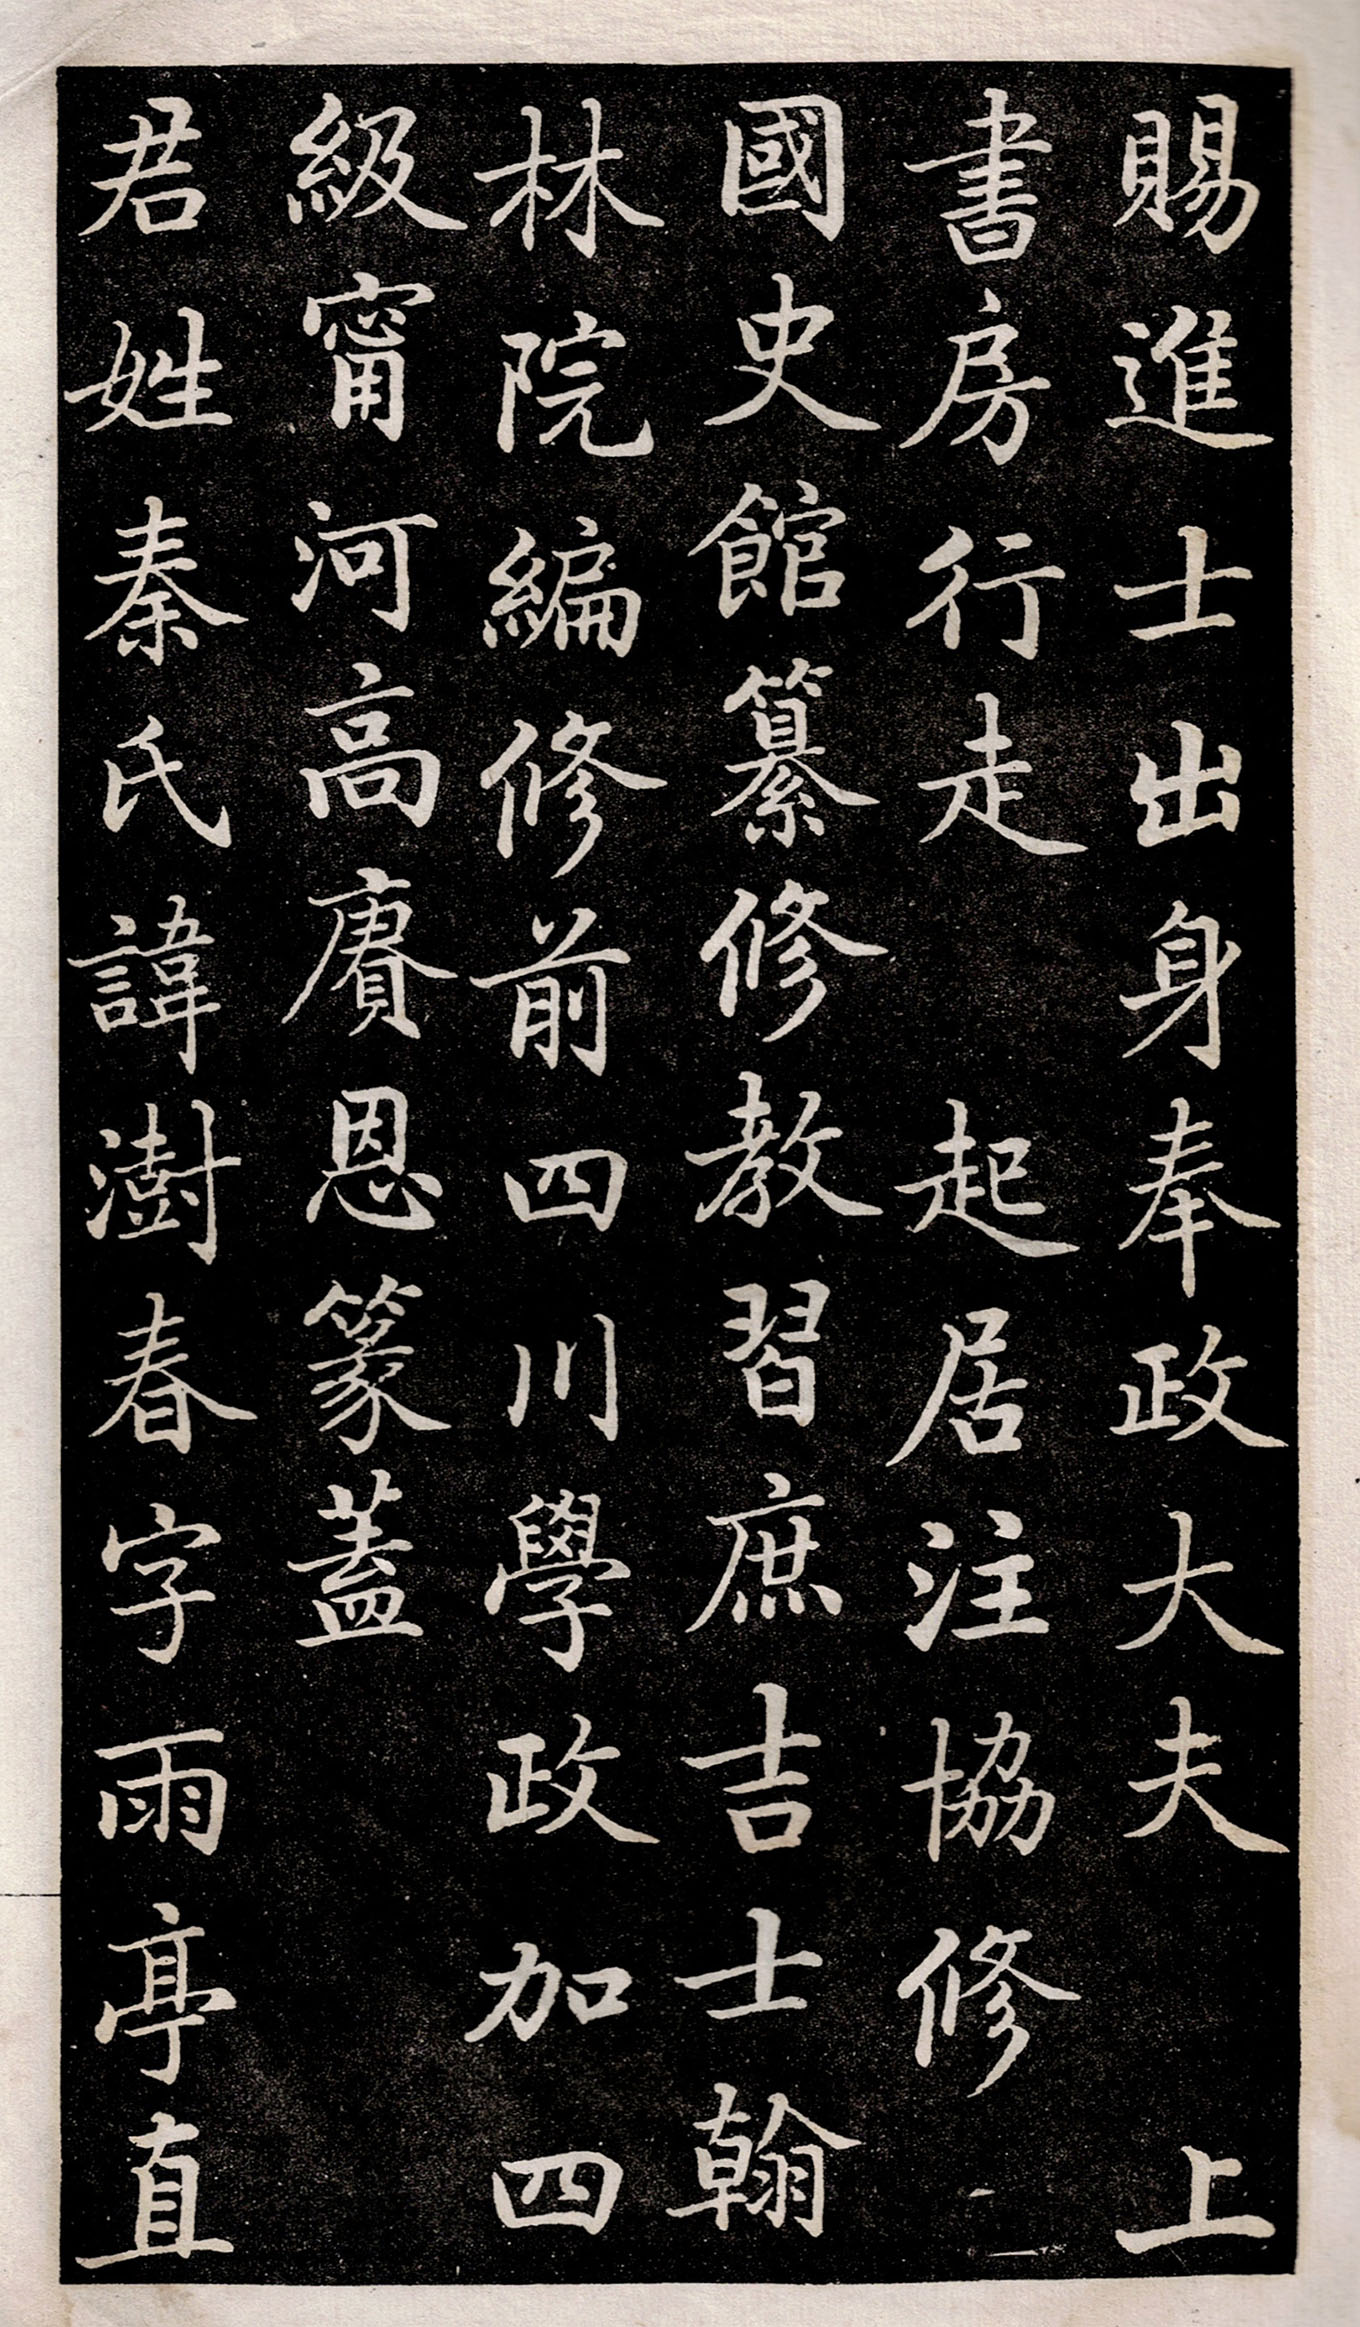 賜進士出身奉政大夫上
書房行走起居注協修
國史館纂修教習庶吉士翰
林院編修前四川學政加四
級甯河高賡恩篆蓋
君姓秦氏諱澍春字雨亭直